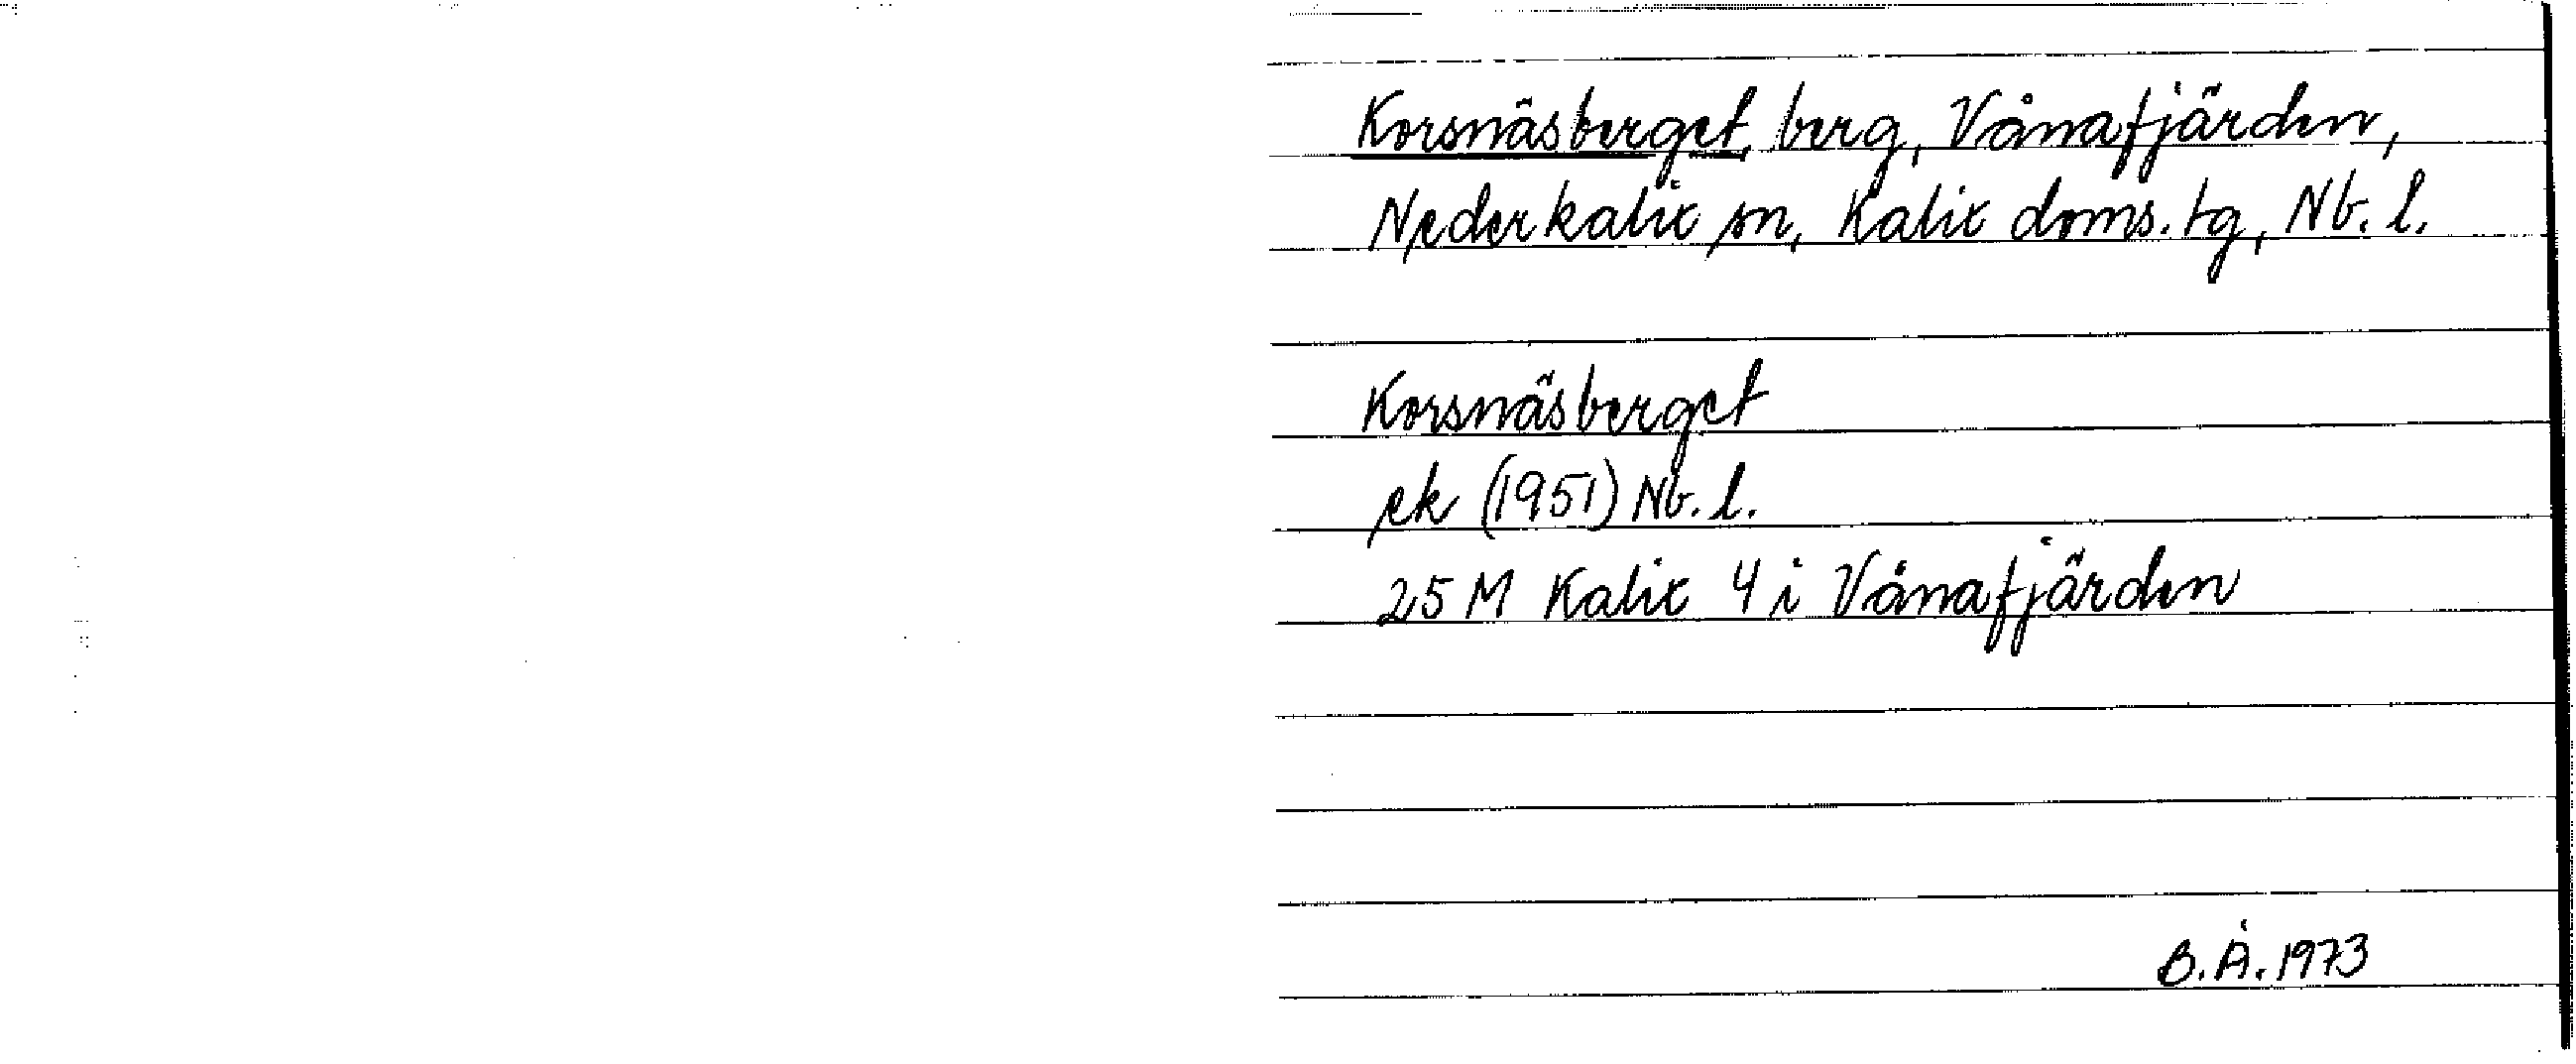 Korsnäsberget, berg, Vånafjärden,
Nederkalix sn, Kalix doms.tg, Nb. l.
Korsnäsberget
ek (1951) Nb. l.
25 M Kalix 4 i Vånafjärden
B.Å. 1973